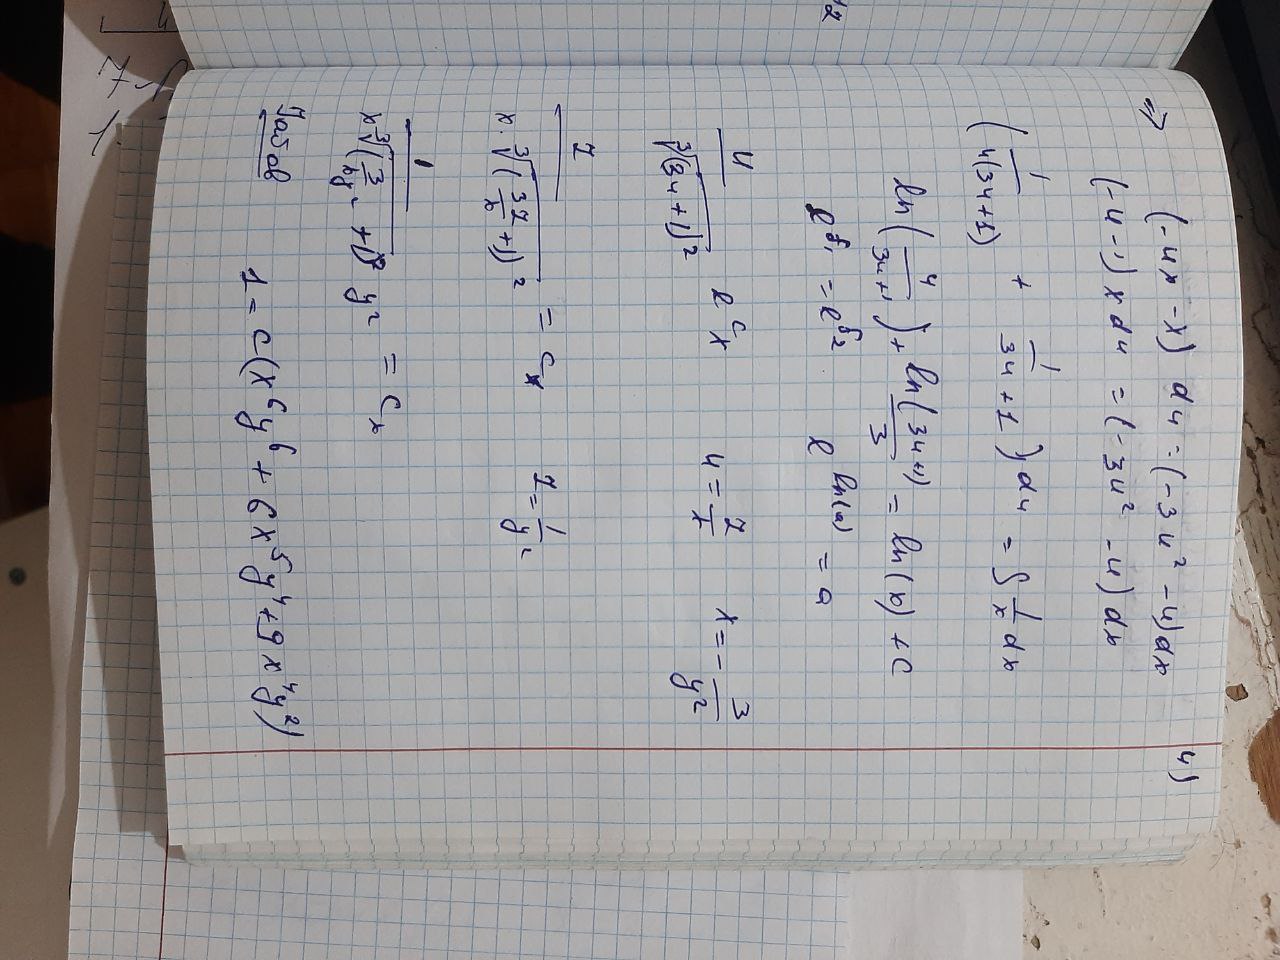 4)
=> (-ux - x) du = (-3u² - u) dx
(-u-1) x du = (-3u² - u) dx
(1/(u(3u+1)) + 1/(3u+1)) du = ∫ 1/x dx
ln(u/(3u+1)) + ln(3u+1)/3 = ln(x) + c
e^f₁ = e^f₂ e^ln(a) = a
u/∛(3u+1)² e^c x u = z/x x = -3/y²
z/(x·∛(3z/x+1)²) = cx z = 1/y²
1/(x∛(3/(xy²+1)² y² = cx
Javob 1 = c(x⁶y⁶ + 6x⁵y⁴ + 9x⁴y²)